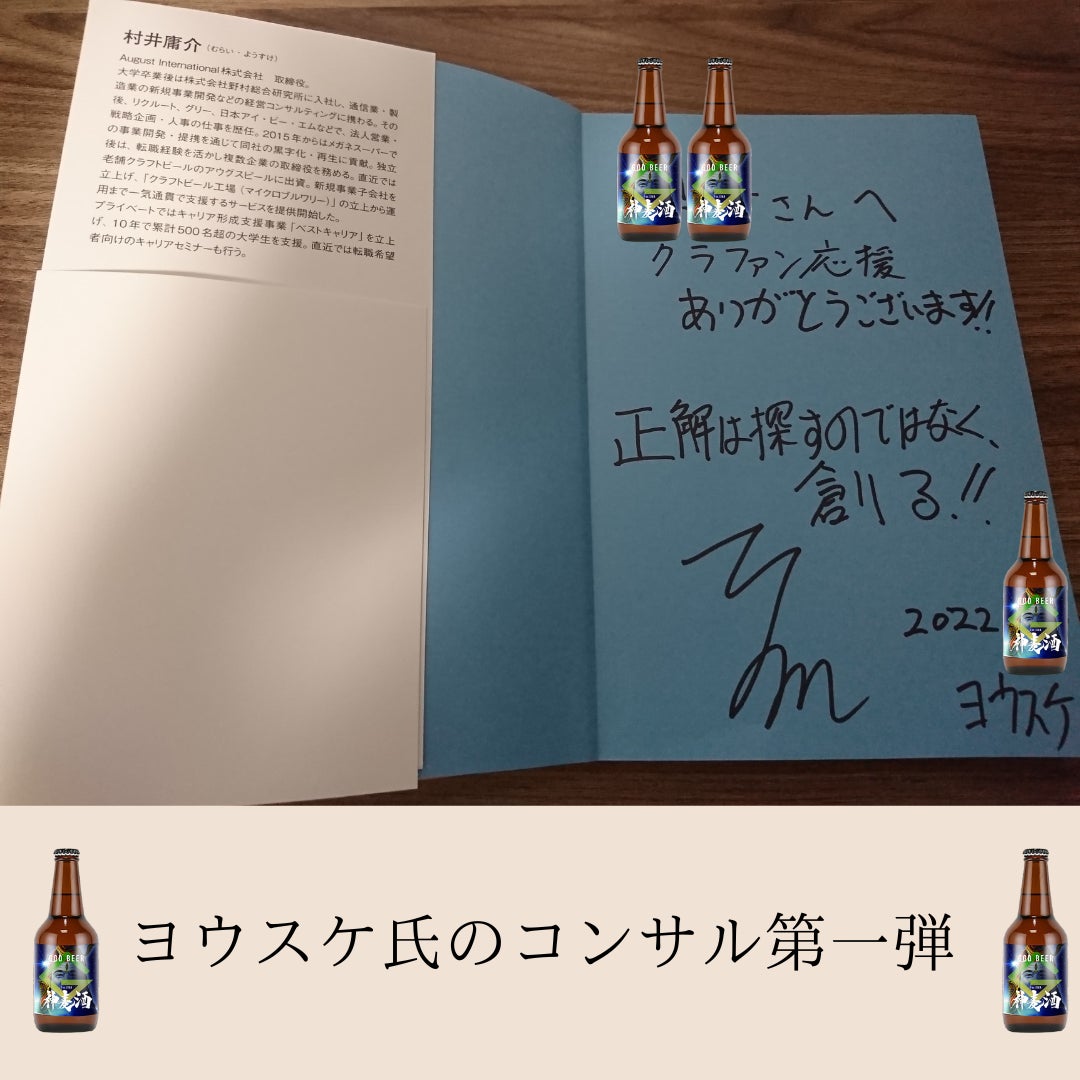 村井庸介(むらい・ようすけ)
August International株式会社 取締役。
大学卒業後は株式会社野村総合研究所に入社し、通信業・製
造業の新規事業開発などの経営コンサルティングに携わる。その
後、リクルート、グリー、日本アイ・ビー・エムなどで、法人営業・
戦略企画・人事の仕事を歴任。2015年からはメガネスーパーで
の事業開発・提携を通じて同社の黒字化・再生に貢献。独立
後は、転職経験を活かし複数企業の取締役を務める。直近では
老舗クラフトビールのアウグスビールに出資。新規事業子会社を
立上げ、「クラフトビール工場(マイクロブルワリー)」の立上から運
用まで一気通貫で支援するサービスを提供開始した。
プライベートではキャリア形成支援事業「ベストキャリア」を立上
げ、10年で累計500名超の大学生を支援。直近では転職希望
者向けのキャリアセミナーも行う。
さんへ
クラファン応援
ありがとうございます!!
正解は探すのではなく、
創る!!
2022
ヨウスケ
GOD BEER
神麦酒
GOD BEER
神麦酒
GOD BEER
神麦酒
ヨウスケ氏のコンサル第一弾
GOD BEER
神麦酒
GOD BEER
神麦酒